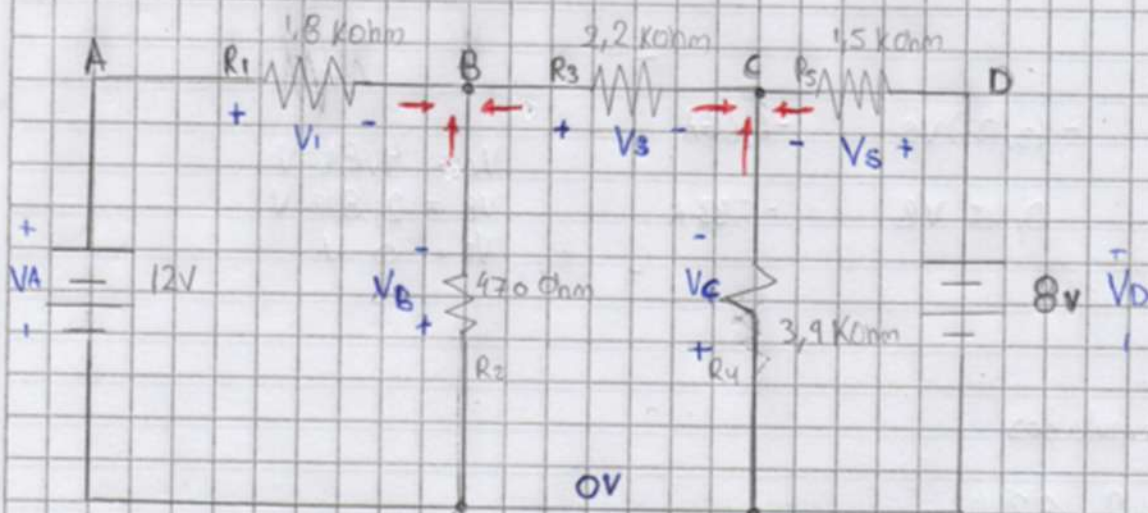 1,8 Kohm 2,2 Kohm 1,5 KOhm
A R1 B R3 C R5 D
+ V1 - + V3 - - V5 +
+ - -
VA 12V VB 470 Ohm VC 8v VD
+ 3,9 KOhm
+ R4
R2
0V